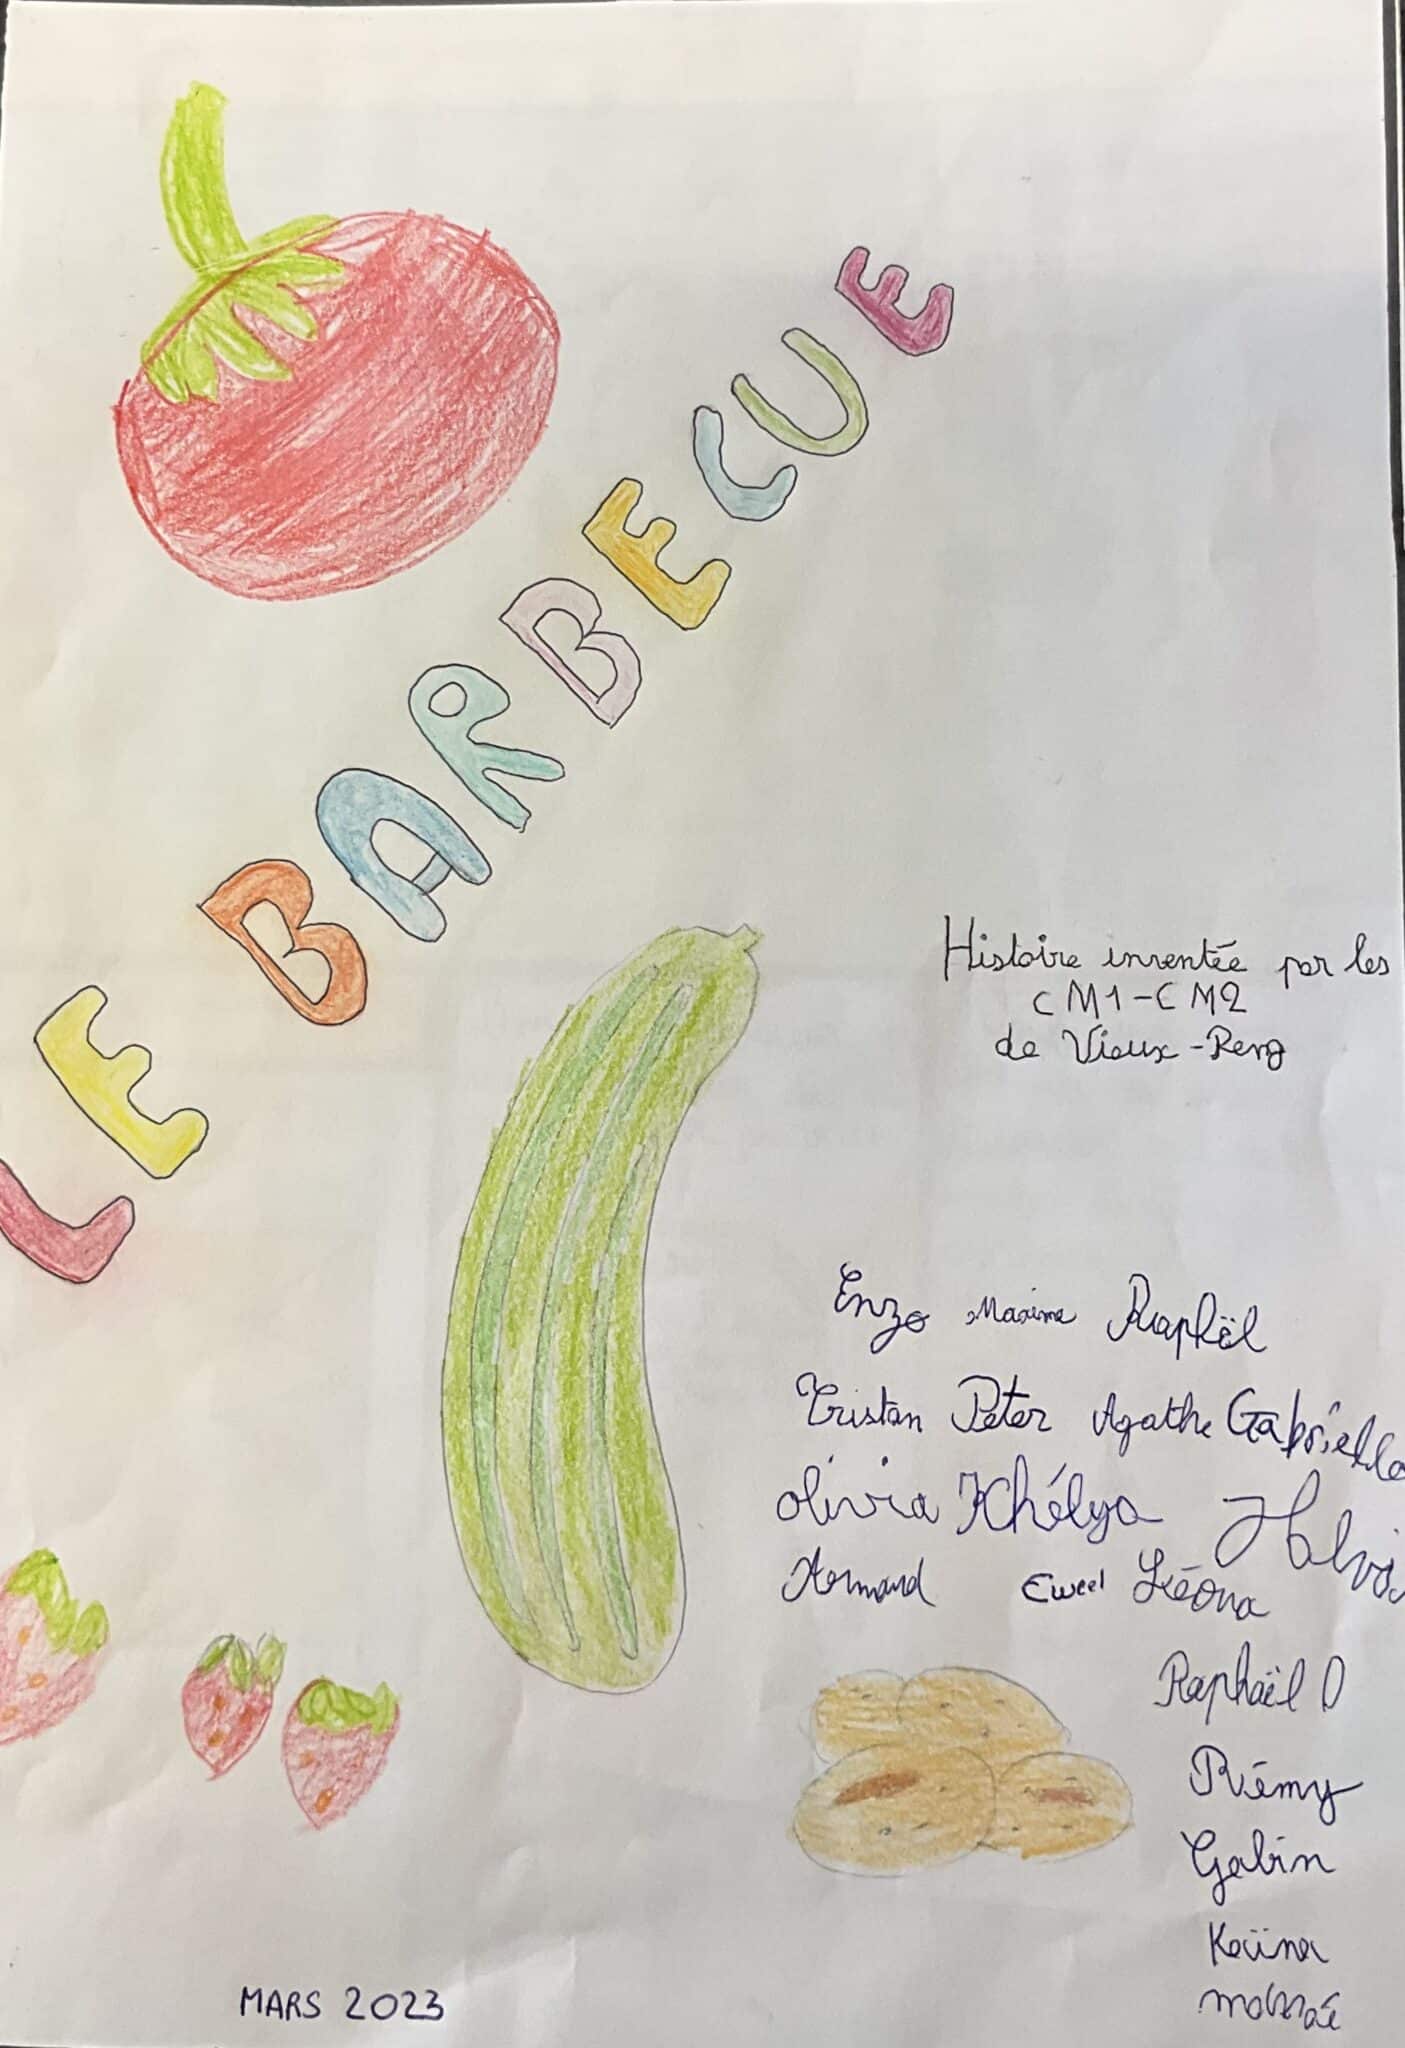 LE BARBECUE
Histoire inventée par les
CM1-CM2
de Vieux-Reng
Enzo Maxime Raphël
Tristan Peter Agathe Gabriella
Olivia Khélya
Armand Ewen Léona
Raphaël D
Rémy
Gabin
Kaïna
MARS 2023